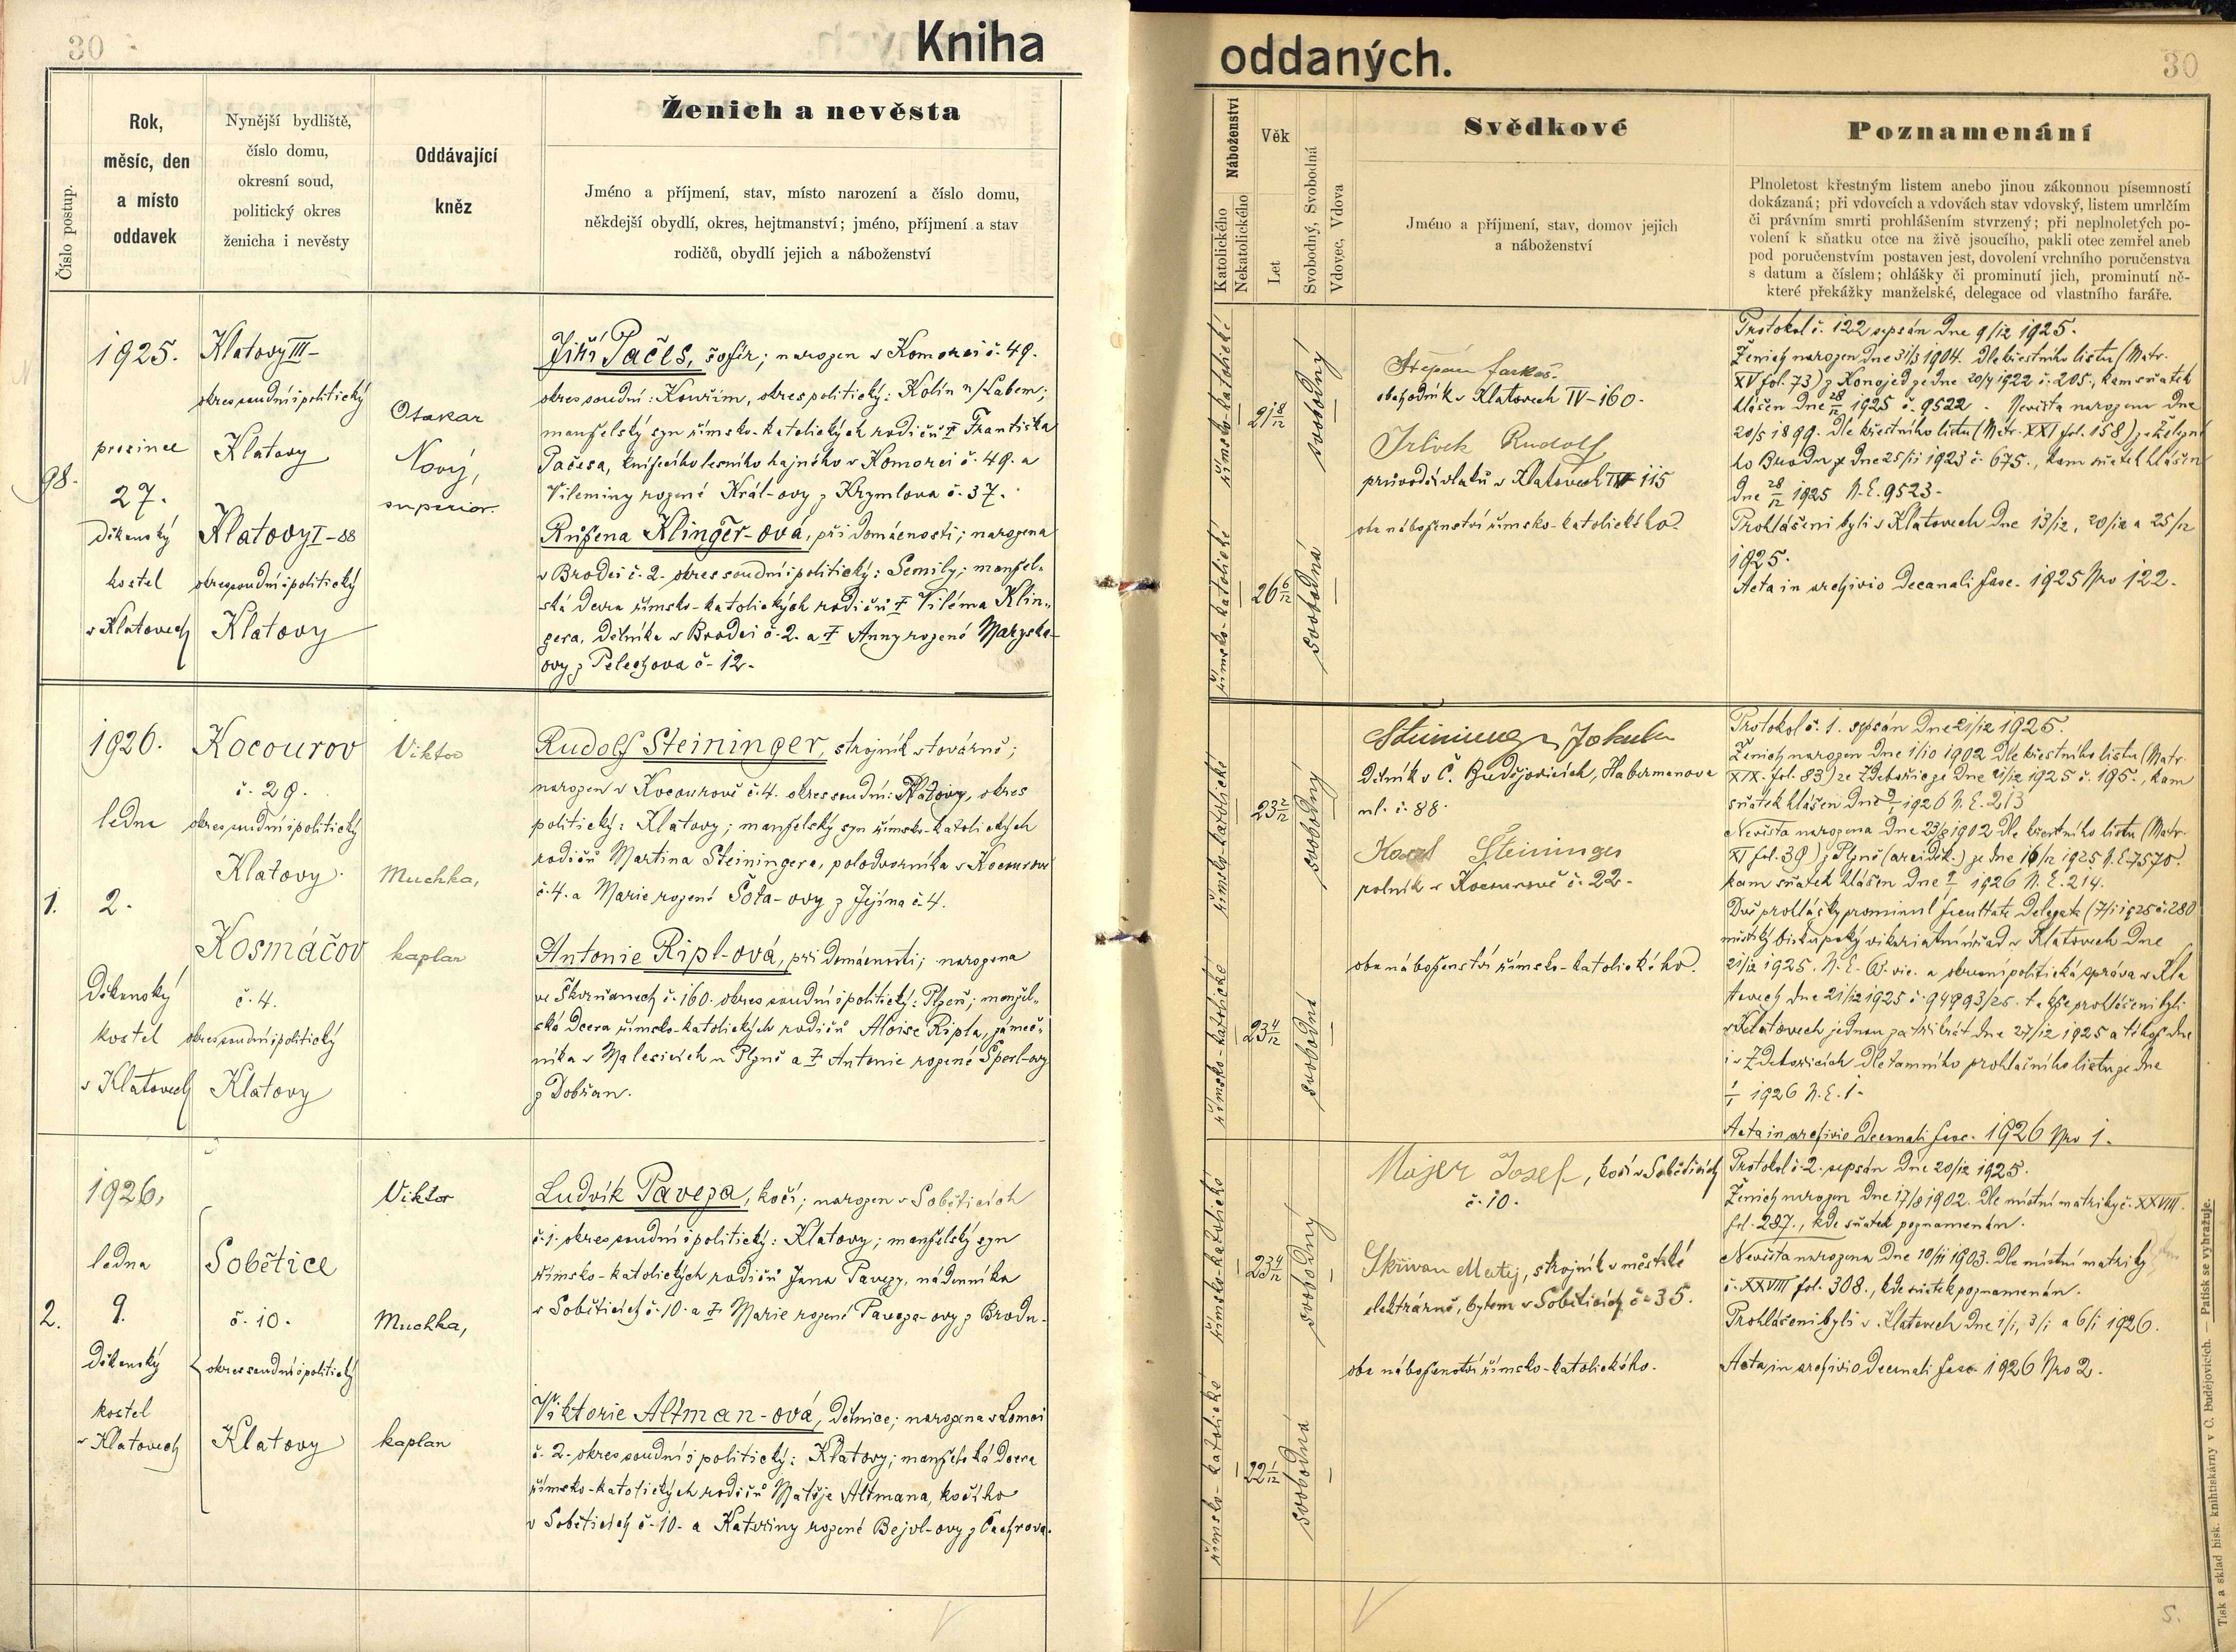 30
Kniha
Číslo postup.
Rok,
měsíc, den
a místo
oddavek
Nynější bydliště,
číslo domu,
okresní soud,
politický okres
ženicha i nevěsty
Oddávající
kněz
Ženich a nevěsta
Jméno a příjmení, stav, místo narození a číslo domu,
někdejší obydlí, okres, hejtmanství; jméno, příjmení a stav
rodičů, obydlí jejich a náboženství
98.
1925.
prosince
27.
Děkanský
kostel
v Klatovech
Klatovy III-
okres soudní i politický
Klatovy
Klatovy I-88
okres soudní i politický
Klatovy
Otakar
Nový,
superior.
Jiří Pačes, šofér; narozen v Komorci č. 49.
okres soudní: Kouřim, okres politický: Kolín n/Labem;
manželský syn římsko-katolických rodičů † Františka
Pačesa, knížecího lesního hajného v Komorci č. 49. a
Vileminy rozené Král-ovy z Krymlova č. 37.
Růžena Klinger-ová, při domácnosti; narozena
v Brodci č. 2. okres soudní i politický: Semily; manžel-
ská dcera římsko-katolických rodičů † Viléma Klin-
gera, dělníka v Brodci č. 2. a † Anny rozené Maryska-
ovy z Pelechova č. 12.
1.
1926.
ledna
2.
Děkanský
kostel
v Klatovech
Kocourov
č. 29.
okres soudní i politický
Klatovy.
Kosmáčov
č. 4.
okres soudní i politický
Klatovy
Viktor
Muchka,
kaplan
Rudolf Steininger, strojník v továrně;
narozen v Kocourově č. 4. okres soudní: Klatovy, okres
politický: Klatovy; manželský syn římsko-katolických
rodičů Martina Steiningera, polodvorníka v Kocourově
č. 4. a Marie rozené Šota-ovy z Jejína č. 4.
Antonie Ripl-ová, při domácnosti; narozena
ve Škvrňanech č. 160. okres soudní i politický: Plzeň; manžel-
ská dcera římsko-katolických rodičů Aloise Ripla, zámeč-
níka v Malesicích u Plzně a † Antonie rozené Šperl-ovy
z Dobřan.
2.
1926.
ledna
9.
Děkanský
kostel
v Klatovech
Sobětice
č. 10.
okres soudní i politický
Klatovy
Viktor
Muchka,
kaplan
Ludvík Paveza, kočí; narozen v Soběticích
č. 1. okres soudní i politický: Klatovy; manželský syn
římsko-katolických rodičů Jana Pavezy, nádenníka
v Soběticích č. 10. a † Marie rozené Paveza-ovy z Brodu.
Viktorie Altman-ová, dělnice; narozena v Lomci
č. 2. okres soudní i politický: Klatovy; manželská dcera
římsko-katolických rodičů Matěje Altmana, kočího
v Soběticích č. 10. a Kateřiny rozené Bejvl-ovy z Čachrova.
oddaných.
30
Náboženství
Katolického
Nekatolického
Věk
Let
Svobodný, Svobodná
Vdovec, Vdova
Svědkové
Jméno a příjmení, stav, domov jejich
a náboženství
Poznamenání
Plnoletost křestným listem anebo jinou zákonnou písemností
dokázaná; při vdovcích a vdovách stav vdovský, listem umrlčím
či právním smrti prohlášením stvrzený; při neplnoletých po-
volení k sňatku otce na živě jsoucího, pakli otec zemřel aneb
pod poručenstvím postaven jest, dovolení vrchního poručenstva
s datum a číslem; ohlášky či prominutí jich, prominutí ně-
které překážky manželské, delegace od vlastního faráře.
římsko-katolické
21 8/12
svobodný
římsko-katolické
26 6/12
svobodná
Štěpán Farkaš.
obchodník v Klatovech IV-160.
Irlvek Rudolf
průvodčí vlaků v Klatovech IV 115
oba náboženství římsko-katolického.
Protokol č. 122 sepsán dne 9/12 1925.
Ženich narozen dne 31/3 1904. Dle křestního listu (Matr.
XV fol. 73) z Konojed ze dne 20/4 1922 č. 205., kam sňatek
hlášen dne 28/12 1925 č. 9522. Nevěsta narozena dne
20/5 1899. Dle křestního listu (Matr. XXI fol. 158) z Železné-
ho Brodu ze dne 25/11 1923 č. 675., kam sňatek hlášen
dne 28/12 1925 N.E. 9523.
Prohlášeni byli v Klatovech dne 13/12, 20/12 a 25/12
1925.
Acta in archivio Decanali fasc. 1925 Nro 122.
římsko-katolické
23 2/12
svobodný
římsko-katolické
23 4/12
svobodná
Steininger Jakub
dělník v Č. Budějovicích, Habermanova
ul. č. 88.
Karel Steininger
rolník v Kocourově č. 22.
oba náboženství římsko-katolického.
Protokol č. 1. sepsán dne 21/12 1925.
Ženich narozen dne 1/10 1902 Dle křestního listu (Matr.
XIX. fol. 83) ze Zdebořic ze dne 21/12 1925 č. 195., kam
sňatek hlášen dne 9/1 1926 N.E. 213
Nevěsta narozena dne 23/8 1902 Dle křestního listu (Matr.
XI fol. 39) z Plzně (arciděk.) ze dne 16/12 1925 N.E. 7570.
kam sňatek hlášen dne 9/1 1926 N.E. 214.
Dvě prohlášky prominul facultate delegata (7/1 1925 č. 280
městský biskupský vikariátní úřad v Klatovech dne
21/12 1925. N.E. 65. vic. a okresní politická správa v Kla
tovech dne 21/12 1925 č. 94993/25. takže prohlášeni byli
v Klatovech jednou za třikrát dne 27/12 1925 a téhož dne
i v Zdebořicích dle tamního prohlašního listu ze dne
1/1 1926 N.E. 1.
Acta in archivio Decanali fasc. 1926 Nro 1.
římsko-katolické
23 4/12
svobodný
římsko-katolické
22 1/12
svobodná
Majer Josef, kočí v Soběticích
č. 10.
Skřivan Matěj, strojník v městské
elektrárně, bytem v Soběticích č. 35.
oba náboženství římsko-katolického.
Protokol č. 2. sepsán dne 20/12 1925.
Ženich narozen dne 17/8 1902. Dle místní matriky č. XXVIII.
fol. 287., kde sňatek poznamenán.
Nevěsta narozena dne 10/11 1903. Dle místní matriky
č. XXVIII fol. 308., kde sňatek poznamenán.
Prohlášeni byli v Klatovech dne 1/1, 3/1 a 6/1 1926.
Acta in archivio Decanali fasc 1926 Nro 2.
Tisk a sklad bisk. knihtiskárny v Č. Budějovicích. — Patisk se vyhražuje.
5.